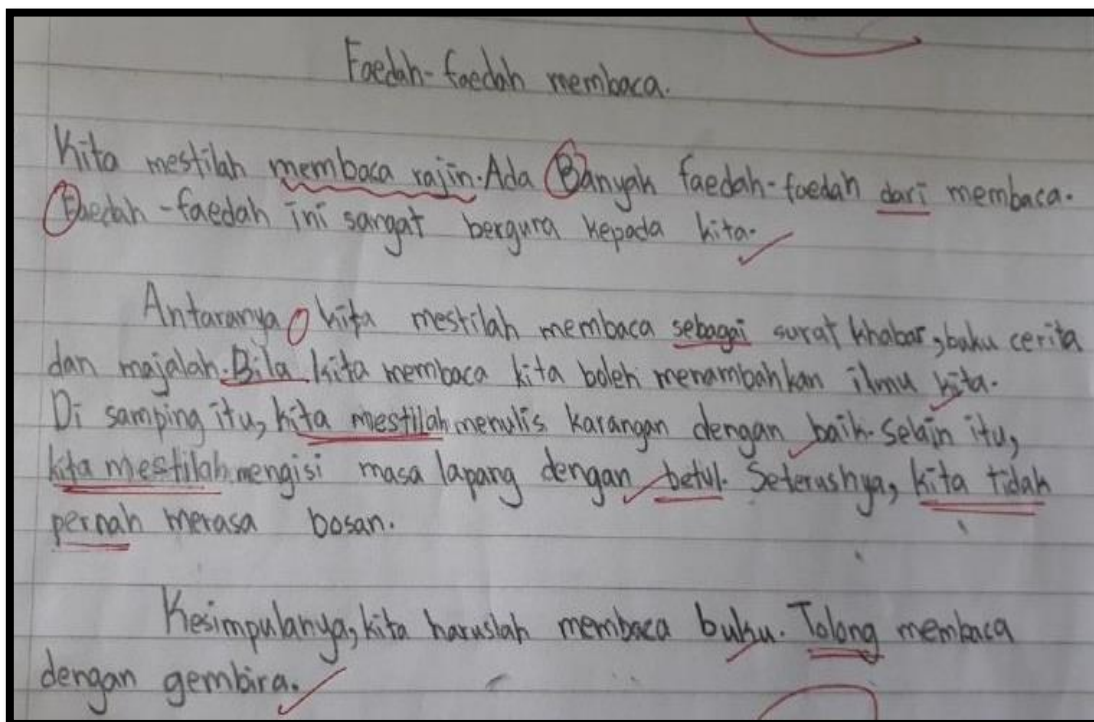 Faedah-faedah membaca.
Kita mestilah membaca rajin. Ada Banyak faedah-faedah dari membaca.
Faedah-faedah ini sangat bergura kepada kita.
Antaranya kita mestilah membaca sebagai surat khabar, baku cerita
dan majalah. Bila kita membaca kita boleh menambahkan ilmu kita.
Di samping itu, kita mestilah menulis karangan dengan baik. Selain itu,
kita mestilah mengisi masa lapang dengan betul. Seterushya, kita tidah
pernah merasa bosan.
Kesimpulanya, kita haruslah membaca buku. Tolong membaca
dengan gembira.